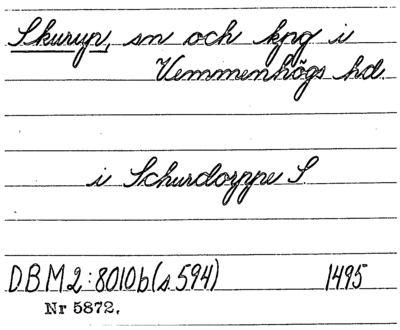 Skurup, sn och kpg i
Vemmenhögs hd.
i Schurdorppe S.
DBM2:8010b(s594) 1495
Nr 5872.